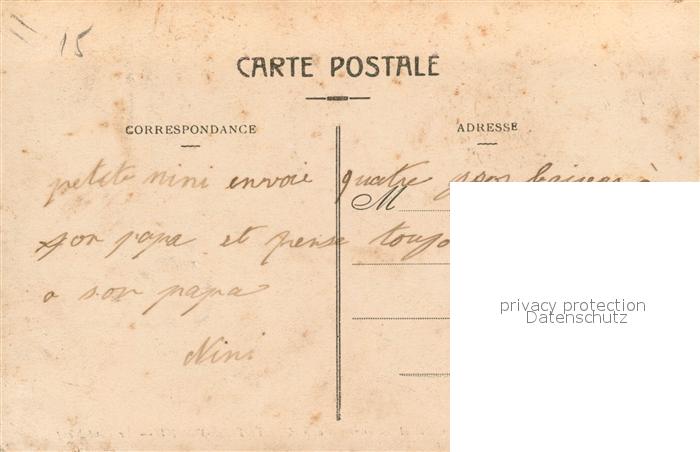 15
CARTE POSTALE
CORRESPONDANCE
ADRESSE
petite nini envoie quatre baisers à
M
son papa et pense toujo
privacy protection
Datenschutz
a son papa
Nini